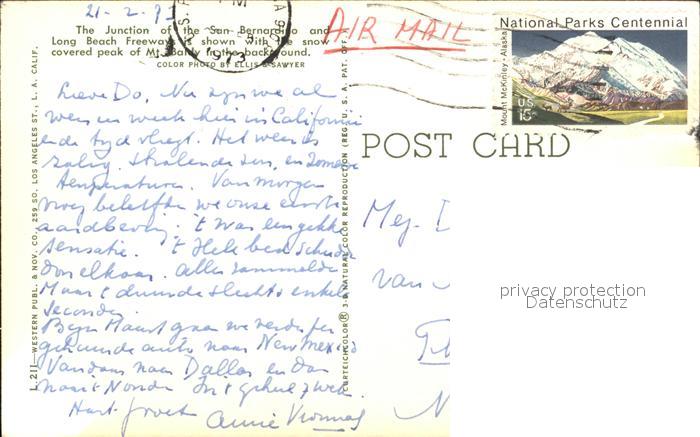 21-2-73
The Junction of the San Bernardino and
Long Beach Freeways is shown with the snow
covered peak of Mt. Baldy in the background.
COLOR PHOTO BY ELLIS SAWYER
1973
AIR MAIL
National Parks Centennial
Mount McKinley-Alaska
U.S.
15c
L. 211—WESTERN PUBL. & NOV. CO. 259 SO. LOS ANGELES ST., L. A. CALIF.
CURTEICHCOLOR® 3-D NATURAL COLOR REPRODUCTION (REG. U. S. A. PAT. OFF.
POST CARD
Lieve Do, Nu zijn we al
weer een week hier in Californië
en de tijd vliegt. Het weer is
zalig, stralende zon, en zomerse
temperaturen. Van morgen
vroeg beleefden we onze eerste
aardbeving. 't was een gekke
sensatie. 't Hele bed schudde
don elkaar. alles rammelde
Maar 't duurde slechts enkele
seconden.
Begin Maart gaan we verder per
gehuurde auto naar New Mexico
Vandaar naar Dallas en dan
naar 't Noorden
Hart. groet Annie
Mej. D
van
privacy protection
Datenschutz